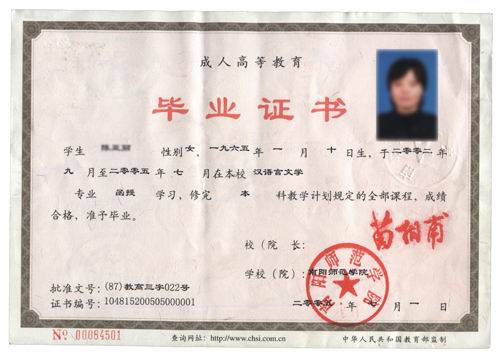 成人高等教育
毕业证书
学生 性别女，一九六五年 一 月 十 日生，于二〇〇二年
九 月至二〇〇五年 七 月在本校 汉语言文学
专业 函授 学习，修完 本 科教学计划规定的全部课程，成绩
合格，准予毕业。
校（院 长：
苗相甫
学校（院）：南阳师范学院
南阳师范学院
批准文号：(87)教高三字022号
证书编号：104815200505000001
二〇〇五年 七 月 一 日
№ 00084501
查询网址：http://www.chsi.com.cn
中华人民共和国教育部监制